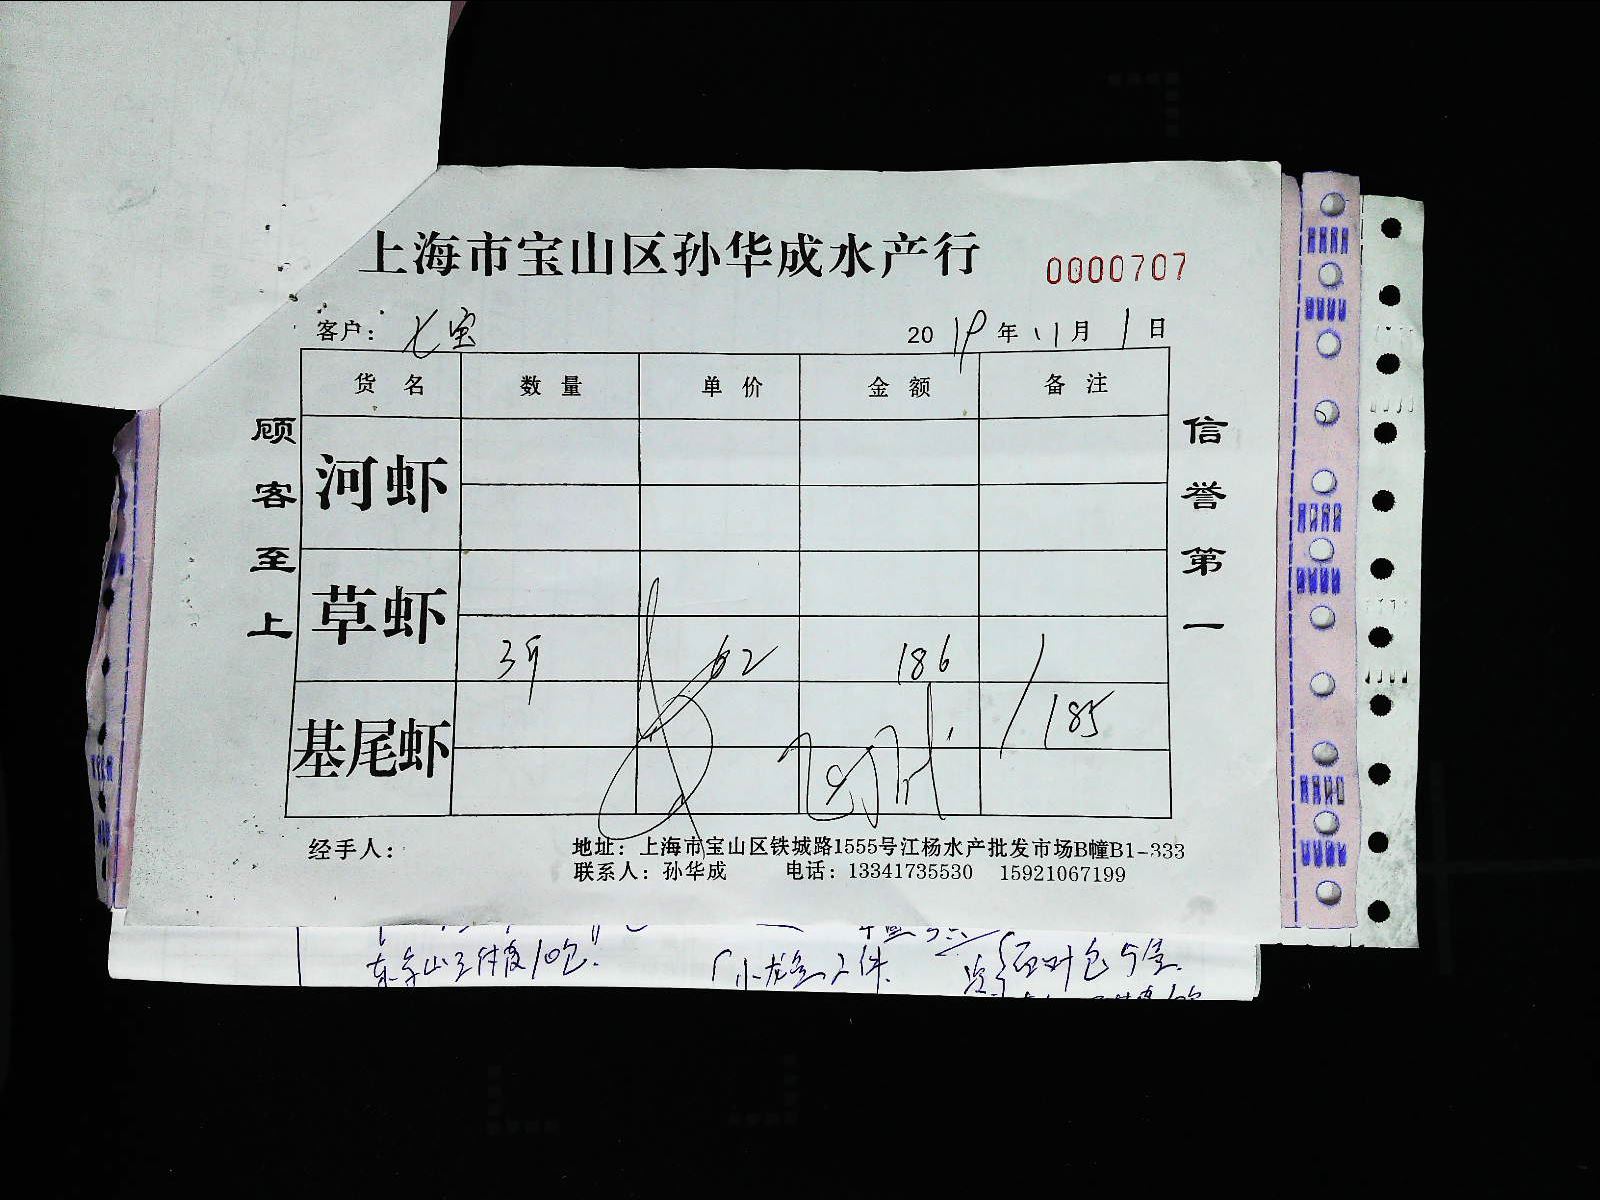 上海市宝山区孙华成水产行
0000707
客户：七宝
2019年11月1日
货名 数量 单价 金额 备注
顾客至上
信誉第一
河虾
草虾
3斤 62 186
185
基尾虾
经手人：
地址：上海市宝山区铁城路1555号江杨水产批发市场B幢B1-333
联系人：孙华成 电话：13341735530 15921067199
小龙虾2件